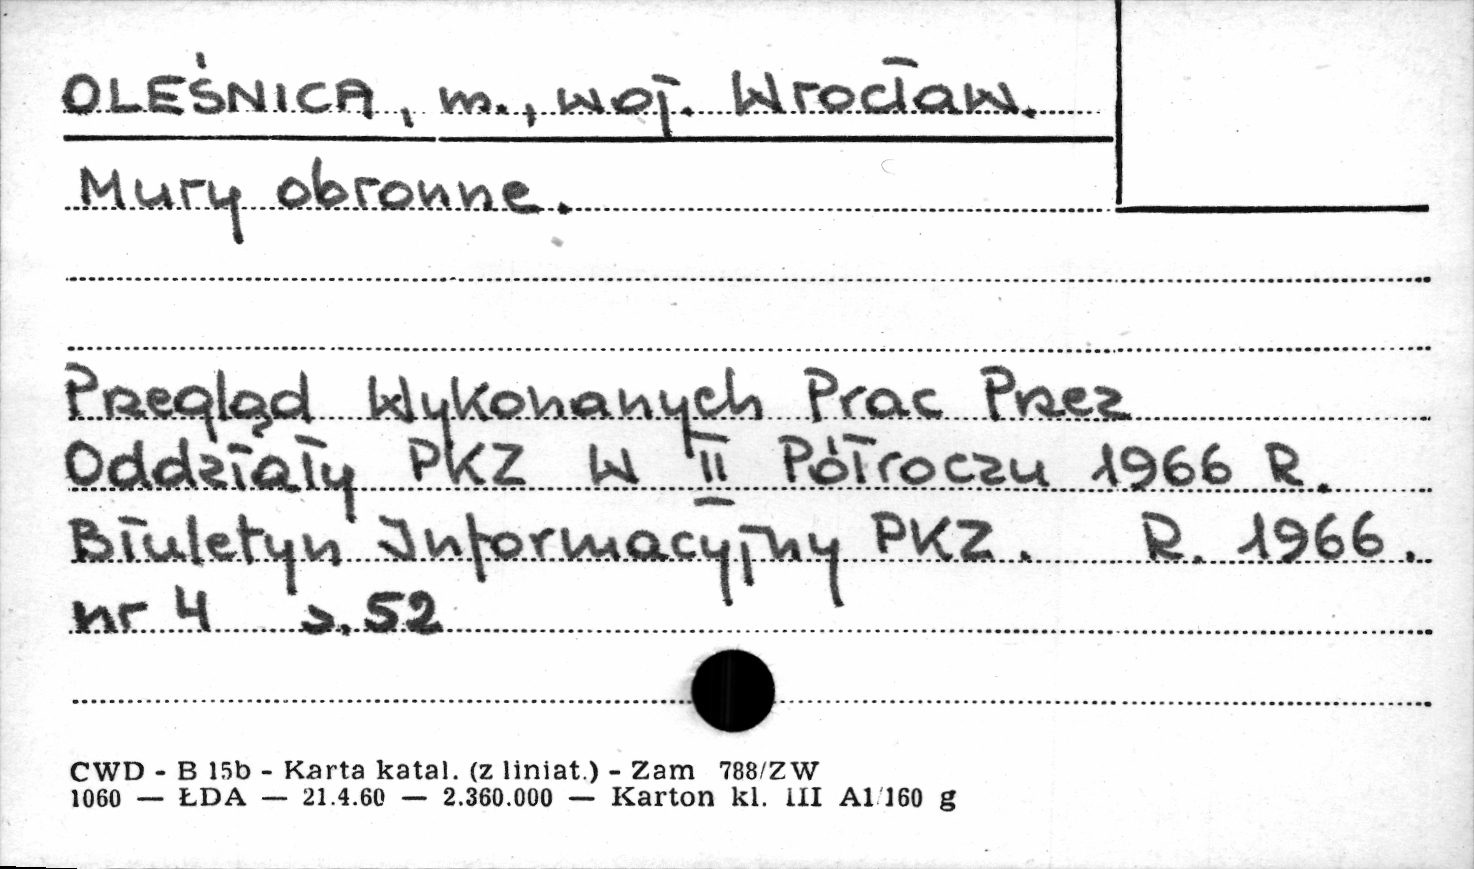 OLEŚNICA, m., woj. Wrocław.
Mury obronne.
Przegląd Wykonanych Prac Przez
Oddziały PKZ W II Półroczu 1966 R.
Biuletyn Informacyjny PKZ. R. 1966.
nr 4 s. 52
CWD - B 15b - Karta katal. (z liniat.) - Zam 788/ZW
1060 — ŁDA — 21.4.60 — 2.360.000 — Karton kl. III A1/160 g